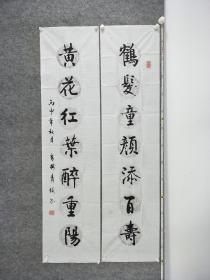 鶴髮童顏添百壽
黃花紅葉醉重陽
丙申年秋月